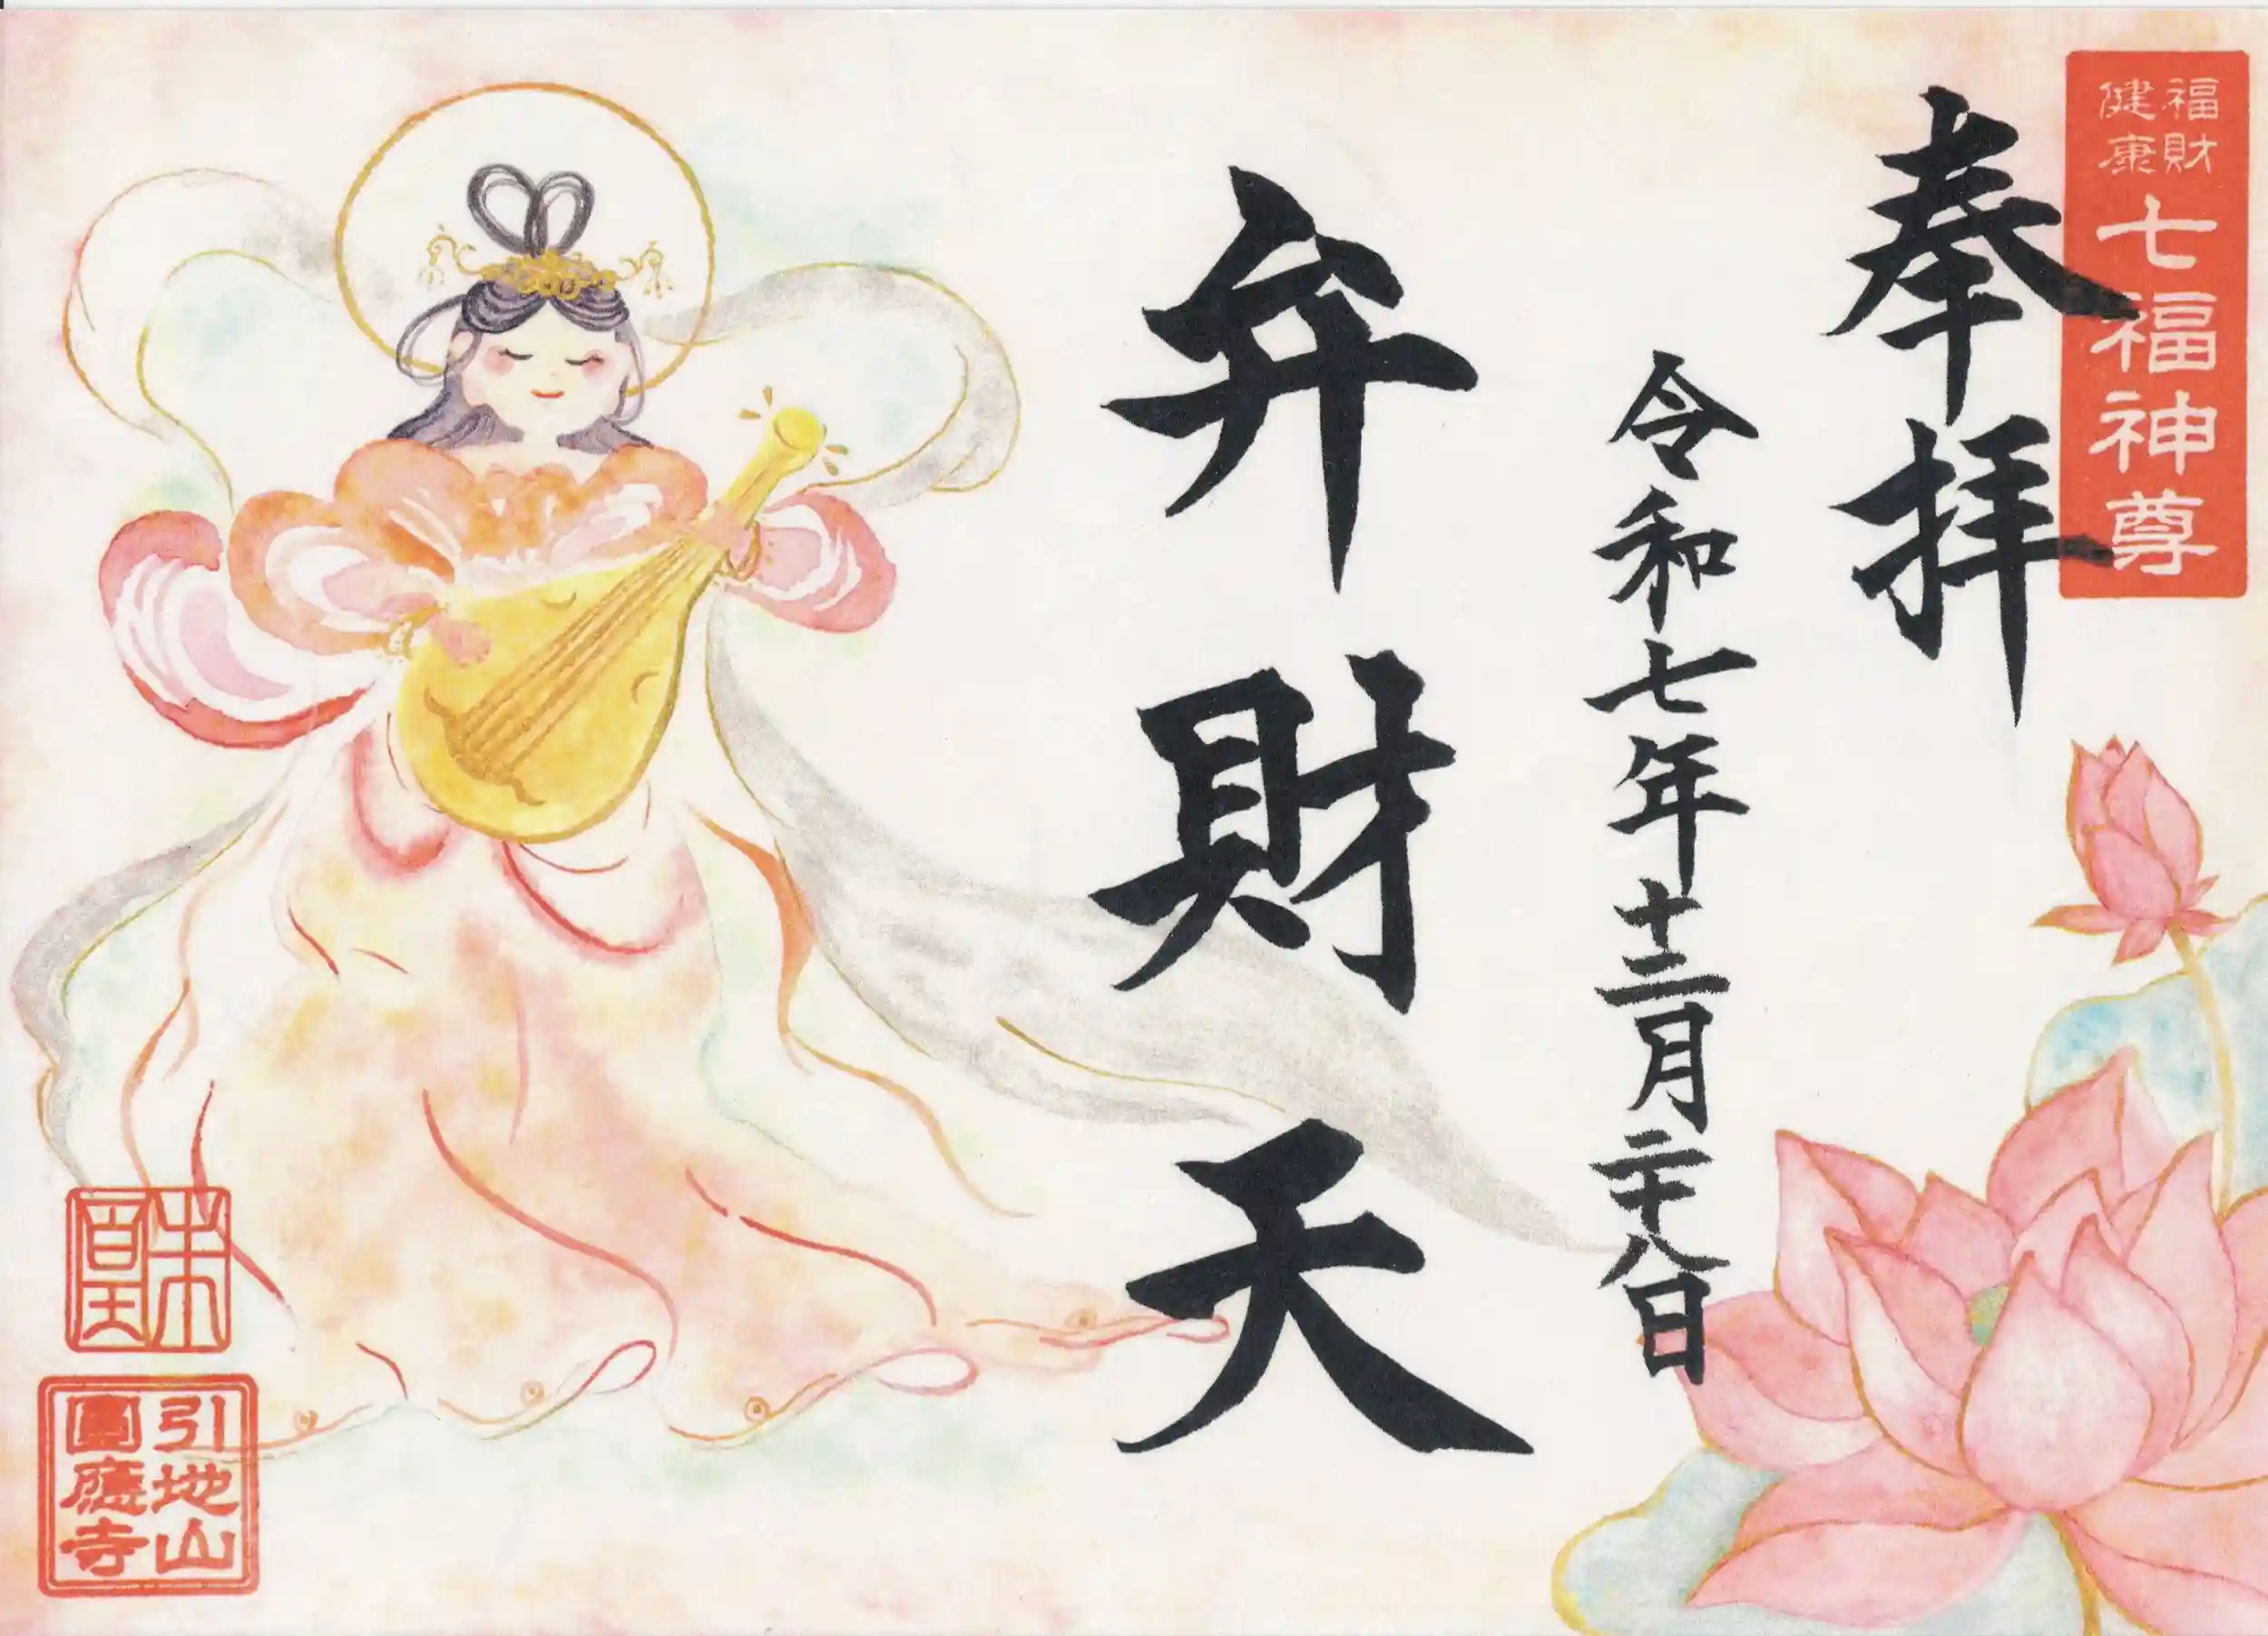 福財
健康
七福神尊
奉拝
令和七年十二月二十八日
弁財天
引地山
圓應寺